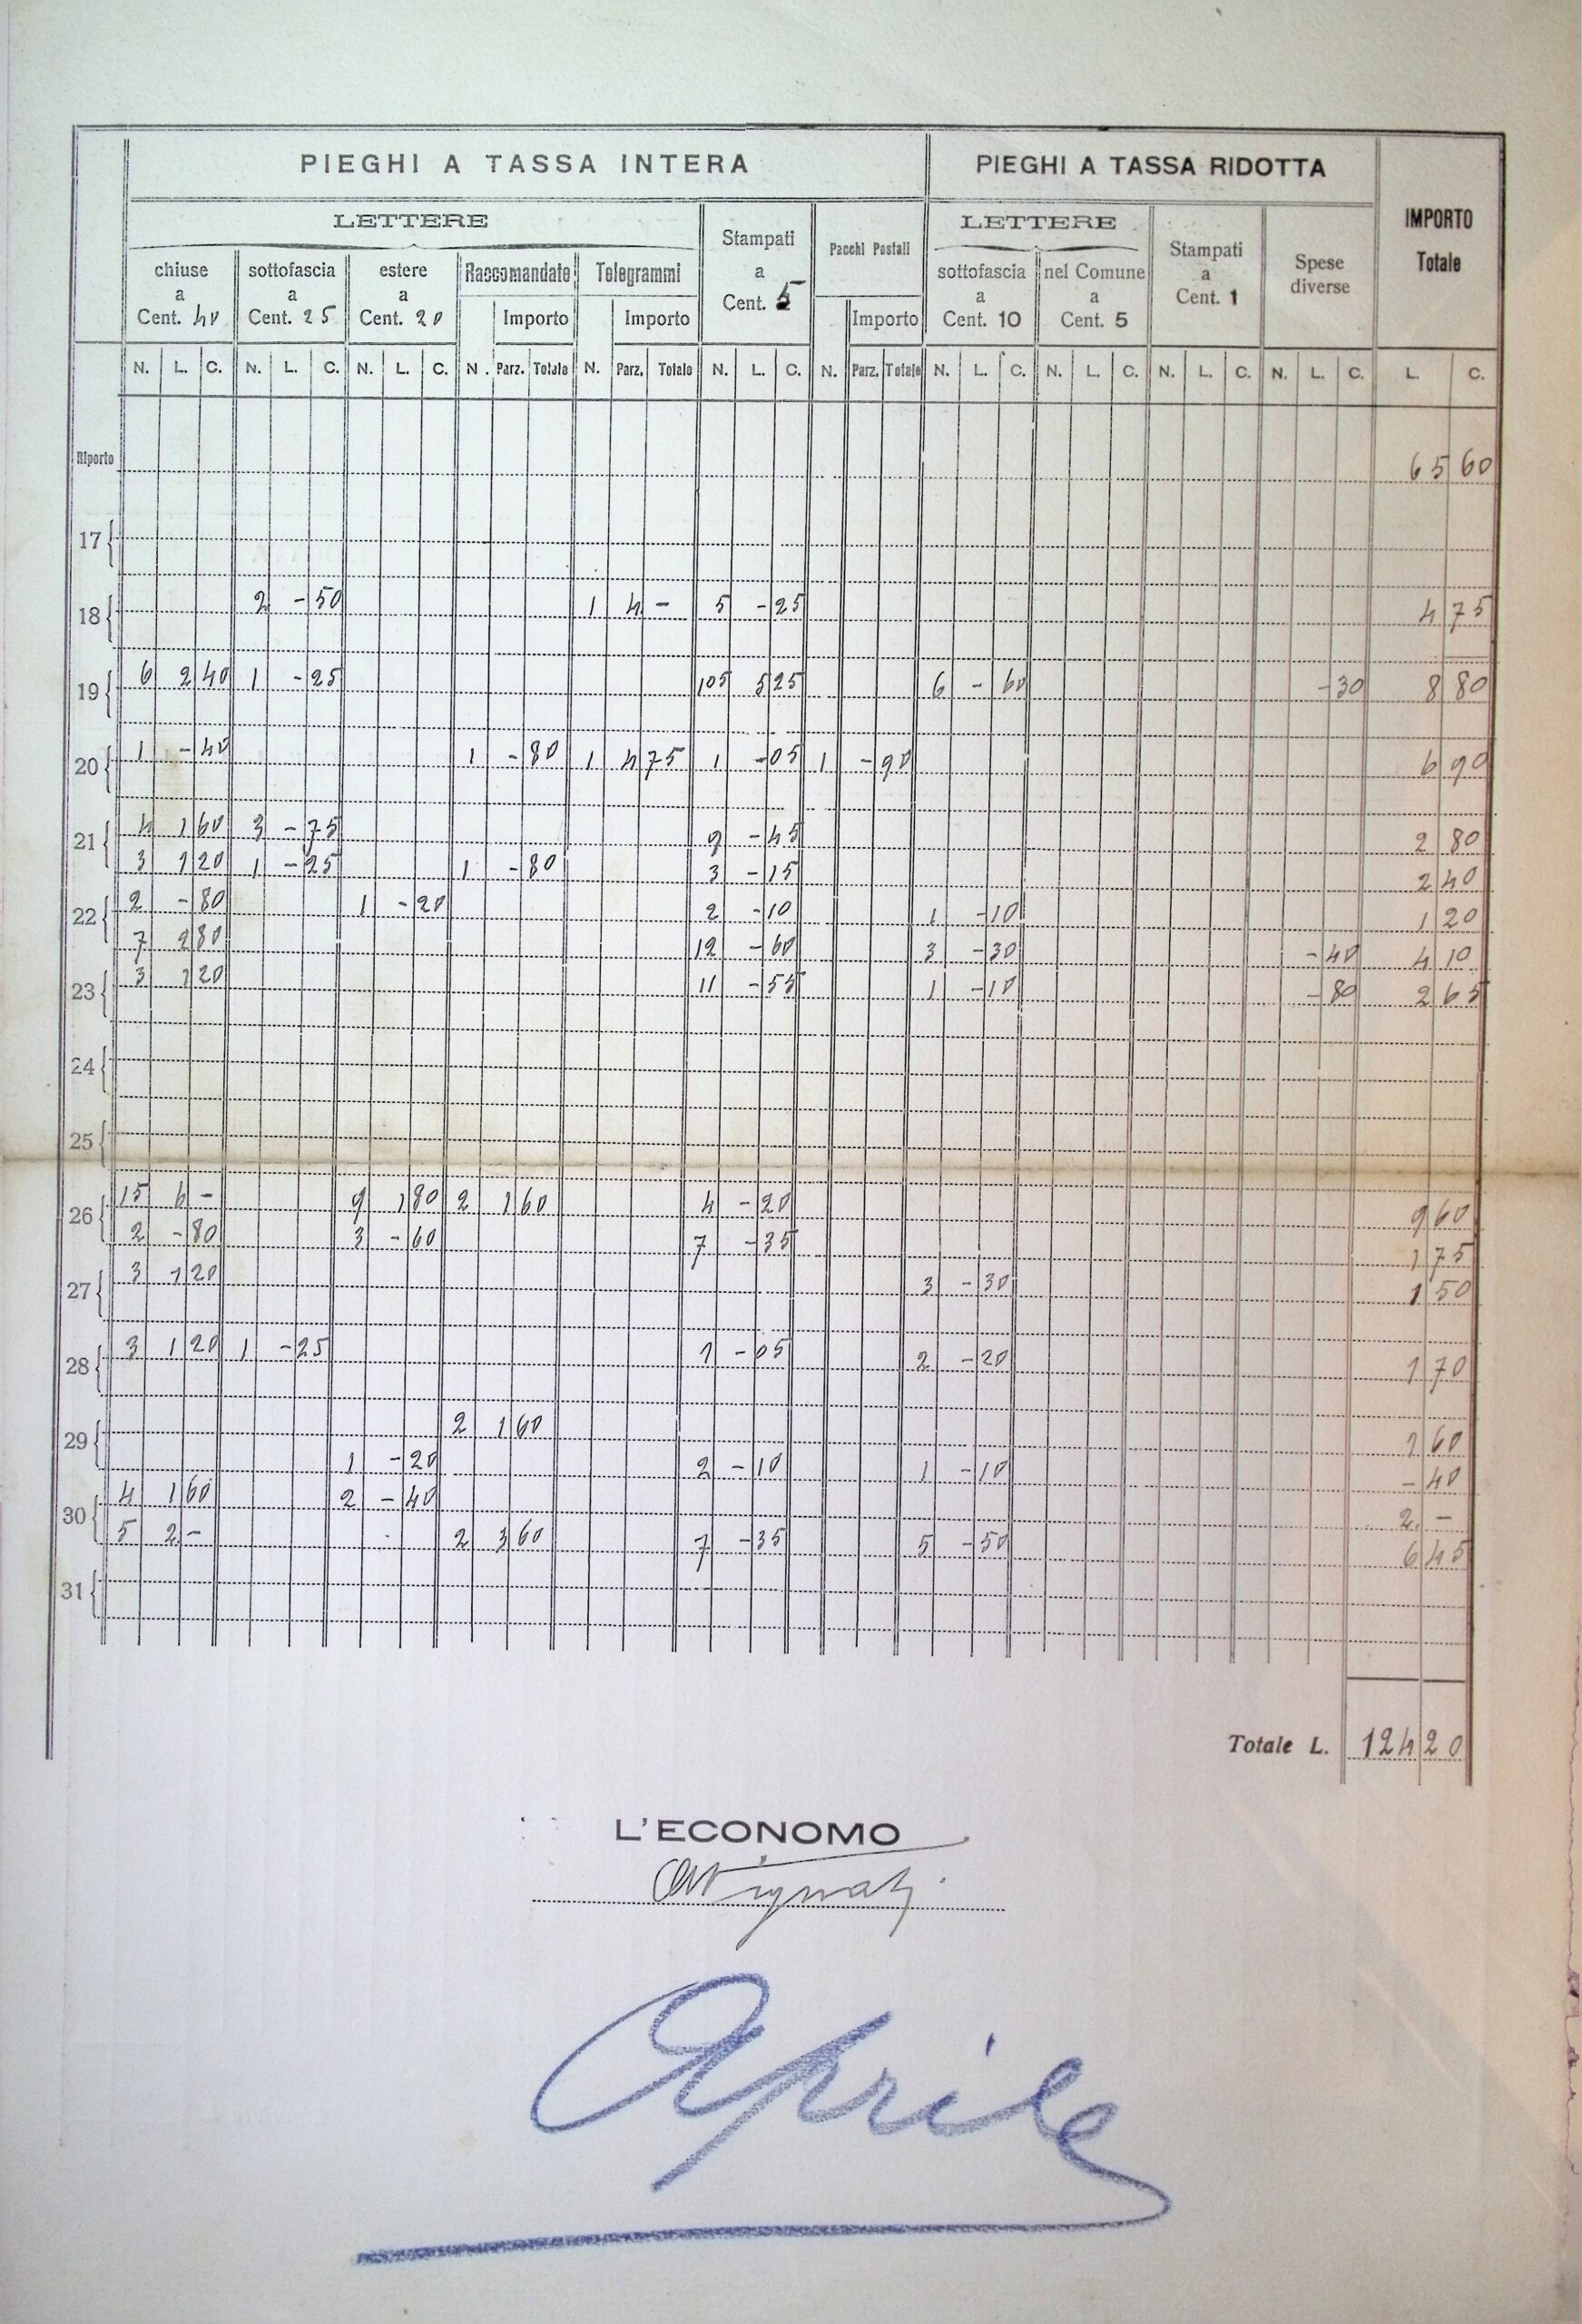 PIEGHI A TASSA INTERA PIEGHI A TASSA RIDOTTA IMPORTO Totale
LETTERE Stampati a Cent. 5 Pacchi Postali LETTERE Stampati a Cent. 1 Spese diverse
chiuse a Cent. 40 sottofascia a Cent. 25 estere a Cent. 20 Raccomandate Telegrammi sottofascia a Cent. 10 nel Comune a Cent. 5
Importo Importo Importo
N. L. C. N. L. C. N. L. C. N. Parz. Totale N. Parz. Totale N. L. C. N. Parz. Totale N. L. C. N. L. C. N. L. C. N. L. C. L. C.
Riporto 65 60
17
18 2 - 50 1 4 - 5 - 25 4 75
19 6 2 40 1 - 25 105 5 25 6 - 60 - 30 8 80
20 1 - 40 1 - 80 1 4 75 1 - 05 1 - 90 6 90
21 4 1 60 3 - 75 9 - 45 2 80
3 1 20 1 - 25 1 - 80 3 - 15 2 40
22 2 - 80 1 - 20 2 - 10 1 - 10 1 20
7 2 80 12 - 60 3 - 30 - 40 4 10
23 3 1 20 11 - 55 1 - 10 - 80 2 65
24
25
26 15 6 - 9 1 80 2 1 60 4 - 20 9 60
2 - 80 3 - 60 7 - 35 1 75
27 3 1 20 3 - 30 1 50
28 3 1 20 1 - 25 1 - 05 2 - 20 1 70
29 2 1 60 1 60
1 - 20 2 - 10 1 - 10 - 40
30 4 1 60 2 - 40 2 -
5 2 - 2 3 60 7 - 35 5 - 50 6 45
31
Totale L. 124 20
L'ECONOMO
Aprile